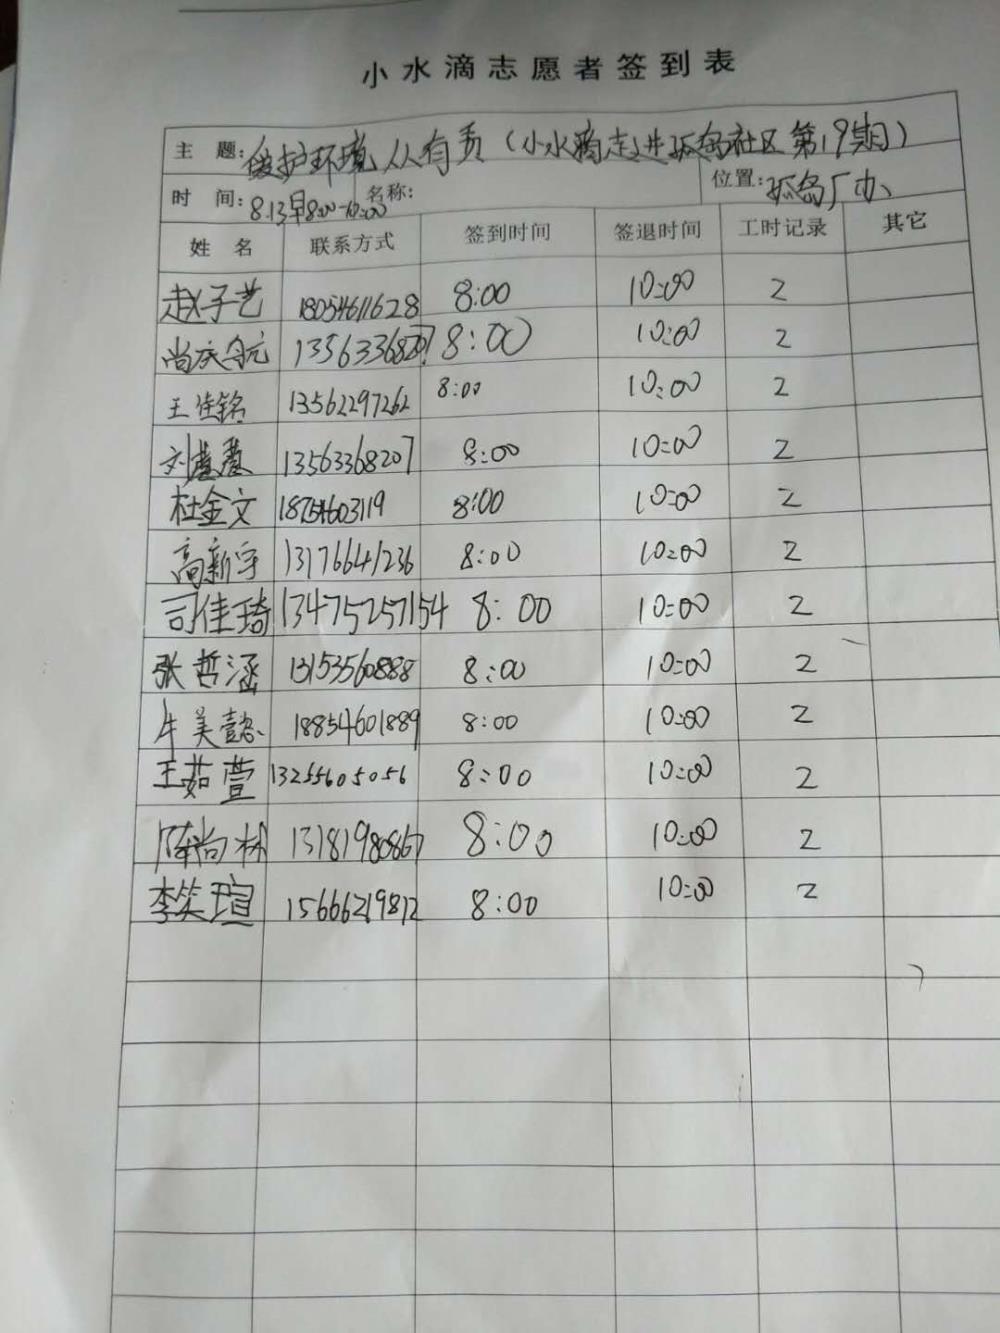 小水滴志愿者签到表
主 题: 保护环境人人有责（小水滴走进孤岛社区第19期）
时 间: 8.13早8:00-10:00 名称: 位置: 孤岛厂办
姓 名 联系方式 签到时间 签退时间 工时记录 其它
赵子艺 18054611628 8:00 10:00 2
尚庆 13563368207 8:00 10:00 2
王佳铭 13562297262 8:00 10:00 2
刘慧慧 13563368207 8:00 10:00 2
杜金文 18754603119 8:00 10:00 2
高新宇 13176641236 8:00 10:00 2
司佳琦 13475257154 8:00 10:00 2
张哲涵 13153560888 8:00 10:00 2
牛美懿 18854601889 8:00 10:00 2
王茹萱 13255605056 8:00 10:00 2
陈尚林 13181980867 8:00 10:00 2
李笑瑄 15666219812 8:00 10:00 2